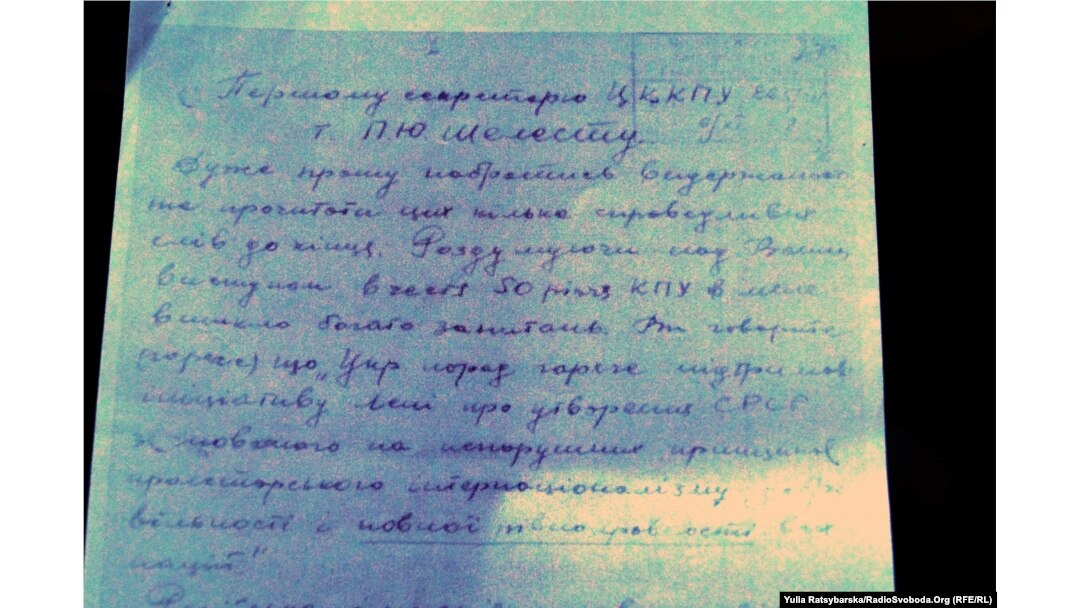 Першому секретарю ЦК КПУ
т. П.Ю Шелесту
Дуже прошу набратись
та прочитати цих кілька справедливих
слів до кінця. Роздумуючи над Вашим
виступом в честь 50 річчя КПУ в мене
виникло багато запитань. Ви говорите
що „Укр народ гаряче підтримав
ініціативу про утворення СРСР
на непорушних принципах
пролетарського інтернаціоналізму
вільності і повної рівноправності всіх
націй"
Yulia Ratsybarska/RadioSvoboda.Org (RFE/RL)